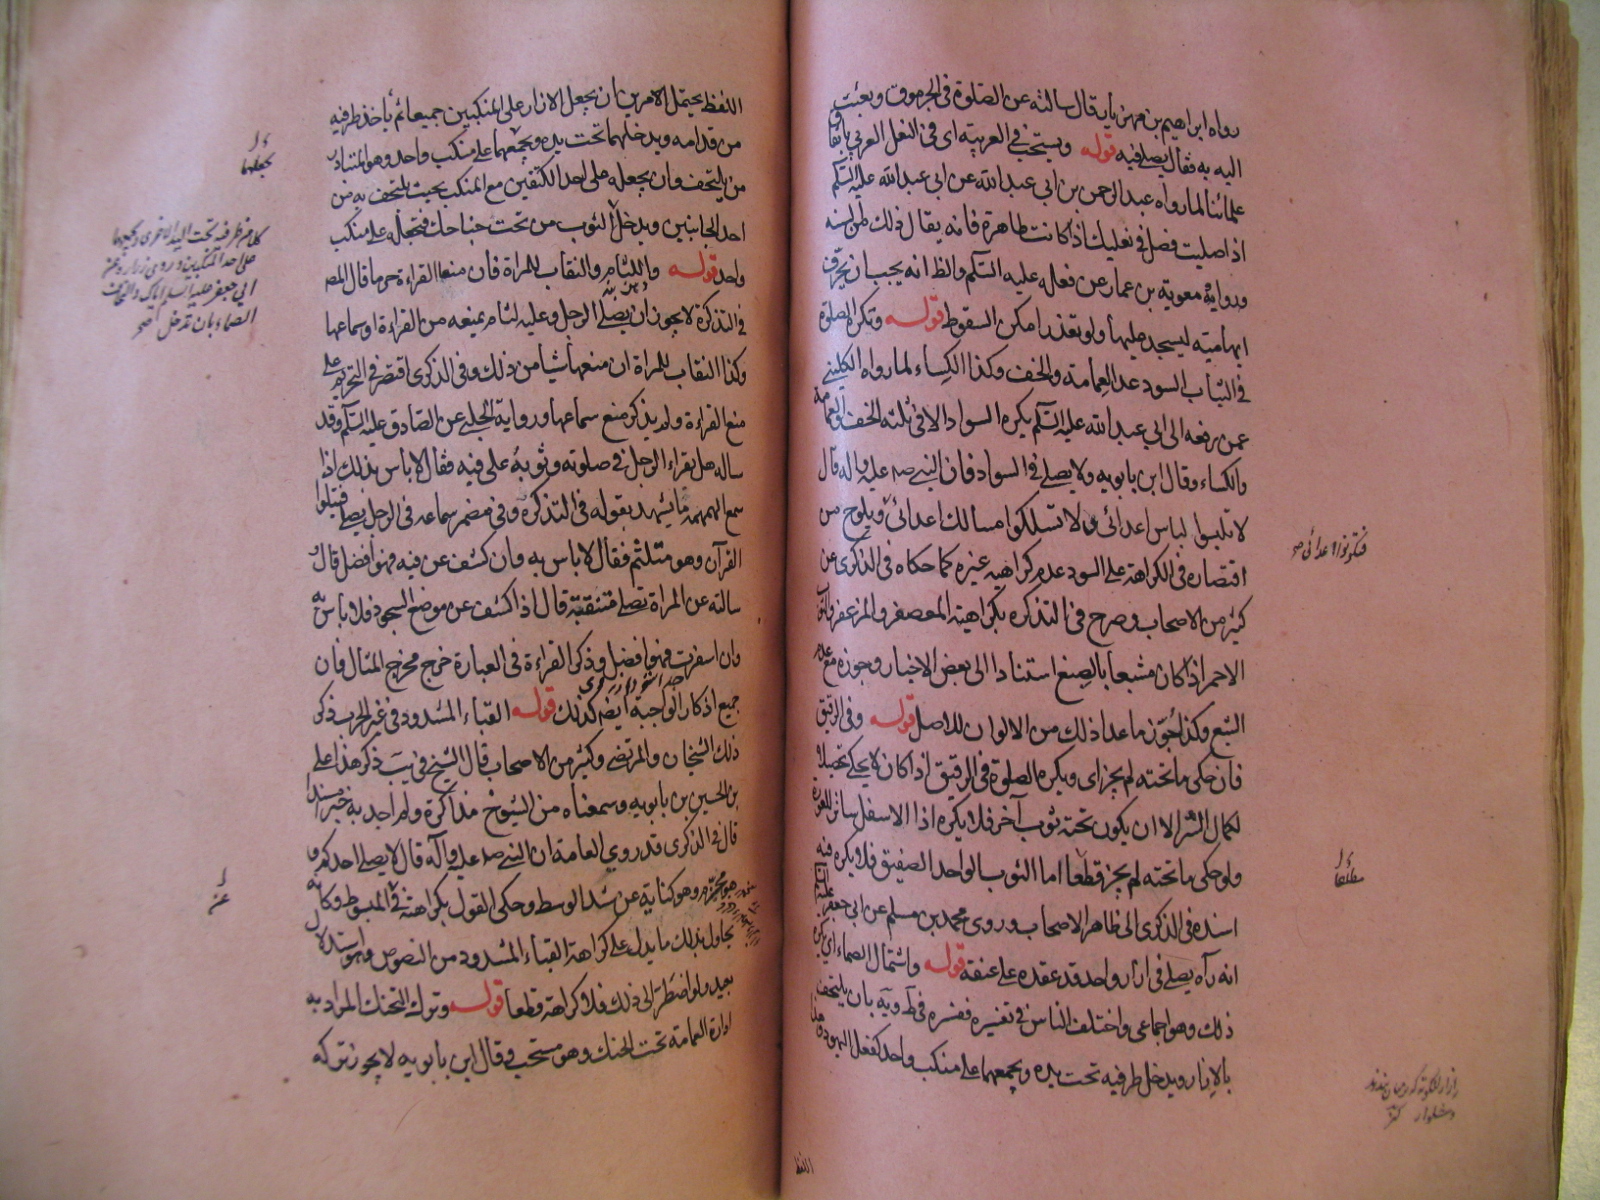 رواه ابراهيم بن مهزيار قال سالته عن الصلوة في الجرموق وبعثت
اليه به فقال يصلى فيه قوله ويستحب في العربية اى في النعل العربي
علمائنا لما رواه عبد الرحمن بن ابى عبد الله عن ابى عبد الله عليه السلم
اذا صليت فصل في نعليك اذا كانت طاهرة فانه يقال ذلك من السنة
ورواية معوية بن عمار عن فعله عليه السلم والظ انه يجب ان
ابهاميه ليسجد عليها ولو تعذر امكن السقوط قوله وتكره الصلوة
في الثياب السود عدا العمامة والخف وكذا الكساء لما رواه الكليني
عمن رفعه الى ابى عبد الله عليه السلم يكره السواد الا في ثلثة الخف والعمامة
والكساء وقال ابن بابويه ولا يصلى في السواد فان النبي صه عليه واله قال
لا تلبسوا لباس اعدائى ولا تسلكوا مسالك اعدائى ويلوح من
اقتصاره في الكراهة على السود عدم كراهية غيره كما حكاه في الذكرى عن
كثير من الاصحاب وصرح في التذكره بكراهية المعصفر والمزعفر
الاحمر اذا كان مشبعا بالصبغ استنادا الى بعض الاخبار وجوزه مع عدم
الشبع وكذا جوز ما عدا ذلك من الالوان للاصل قوله وفي الرقيق
فان حكى ما تحته لم يجز اى ويكره الصلوة في الرقيق اذا كان لا يحكى تحصيلا
لكمال الستر الا ان يكون تحته ثوب آخر فلا يكره اذا الاسفل ساتر للعورة
ولو حكى ما تحته لم يجز قطعا اما الثوب الواحد الصفيق فلا يكره فيه
اسنده في الذكرى الى ظاهر الاصحاب وروى محمد بن مسلم عن ابى جعفر عليه السلم
انه رآه يصلى في ازار واحد قد عقده على عنقه قوله واشتمال الصماء اى يكره
ذلك وهو اجماعى واختلف الناس في تفسيره ففسره في ط و يه بان يلتحف
بالازار ويدخل طرفيه تحت يده ويجمعهما على منكب واحد كفعل اليهود وهذا
اللفظ
فتكونوا اعدائى صح
اللفظ يحتمل الامرين ان يجعل الازار على المنكبين جميعا ثم ياخذ طرفيه
من قدامه ويدخلهما تحت يده ويجمعهما على منكب واحد وهو المتبادر
من يلتحف وان يجعله على احد الكتفين مع المنكب بحيث يلتحف به من
احد الجانبين ويدخل الثوب من تحت جناحك فتجعله على منكب
واحد قوله واللثام والنقاب للمراة فان منعا القراءة حرما قال المص
في التذكرة لا يجوز ان يصلى الرجل وعليه لثام يمنعه من القراءة او سماعها
وكذا النقاب للمراة ان منعها شيأ من ذلك وفي الذكرى اقتصر في التحريم على
منع القراءة ولم يذكر منع سماعها ورواية الحلبي عن الصادق عليه السلم وقد
ساله هل يقراء الرجل في صلوته وثوبه على فيه فقال لا باس بذلك اذا
سمع الهمهمة مما يشهد بقوله في التذكرة وفي مضمر سماعه في الرجل يصلى فيتلوا
القرآن وهو متلثم فقال لا باس به وان كشف عن فيه فهو افضل قال
سالته عن المراة تصلى متنقبة قال اذا كشف عن موضع السجود فلا باس به
وان اسفرت فهو افضل وذكر القراءة في العبارة خرج مخرج المثال فان
جميع اذكار الواجبة ايضه كذلك قوله القباء المشدود في غير الحرب ذكر
ذلك الشيخان والمرتضى وكثير من الاصحاب قال الشيخ في يب ذكر هذا على
بن الحسين بن بابويه وسمعناه من الشيوخ مذاكرة ولم اجد به خبرا مسندا
قال في الذكرى قد روى العامة ان النبي صه عليه وآله قال لا يصلى احدكم و
هو محزم وهو كناية عن شد الوسط وحكى القول بكراهته في المبسوط وكانه
يحاول بذلك ما يدل على كراهة القباء المشدود من النصوص وهو استدلال
بعيد ولو اضطر الى ذلك فلا كراهة قطعا قوله وترك التحنك المراد به
ادارة العمامة تحت الحنك وهو مستحب قال ابن بابويه لا يجوز تركه
يجعلهما
طرفيه تحت اليد الاخرى ويجمعهما
على احد المنكبين وروى زرارة عن
ابى جعفر عليه السلم اياك والتحاف
الصماء بان تدخل صح